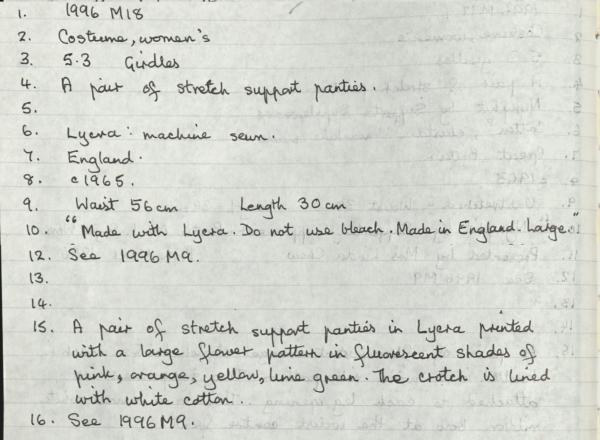 1. 1996 M18
2. Costume, women's
3. 5.3 Girdles
4. A pair of stretch support panties.
5.
6. Lycra: machine sewn.
7. England.
8. c1965.
9. Waist 56cm Length 30cm
10. "Made with Lycra. Do not use bleach. Made in England. Large."
12. See 1996M9.
13.
14.
15. A pair of stretch support panties in Lycra printed
with a large flower pattern in fluorescent shades of
pink, orange, yellow, lime green. The crotch is lined
with white cotton.
16. See 1996M9.